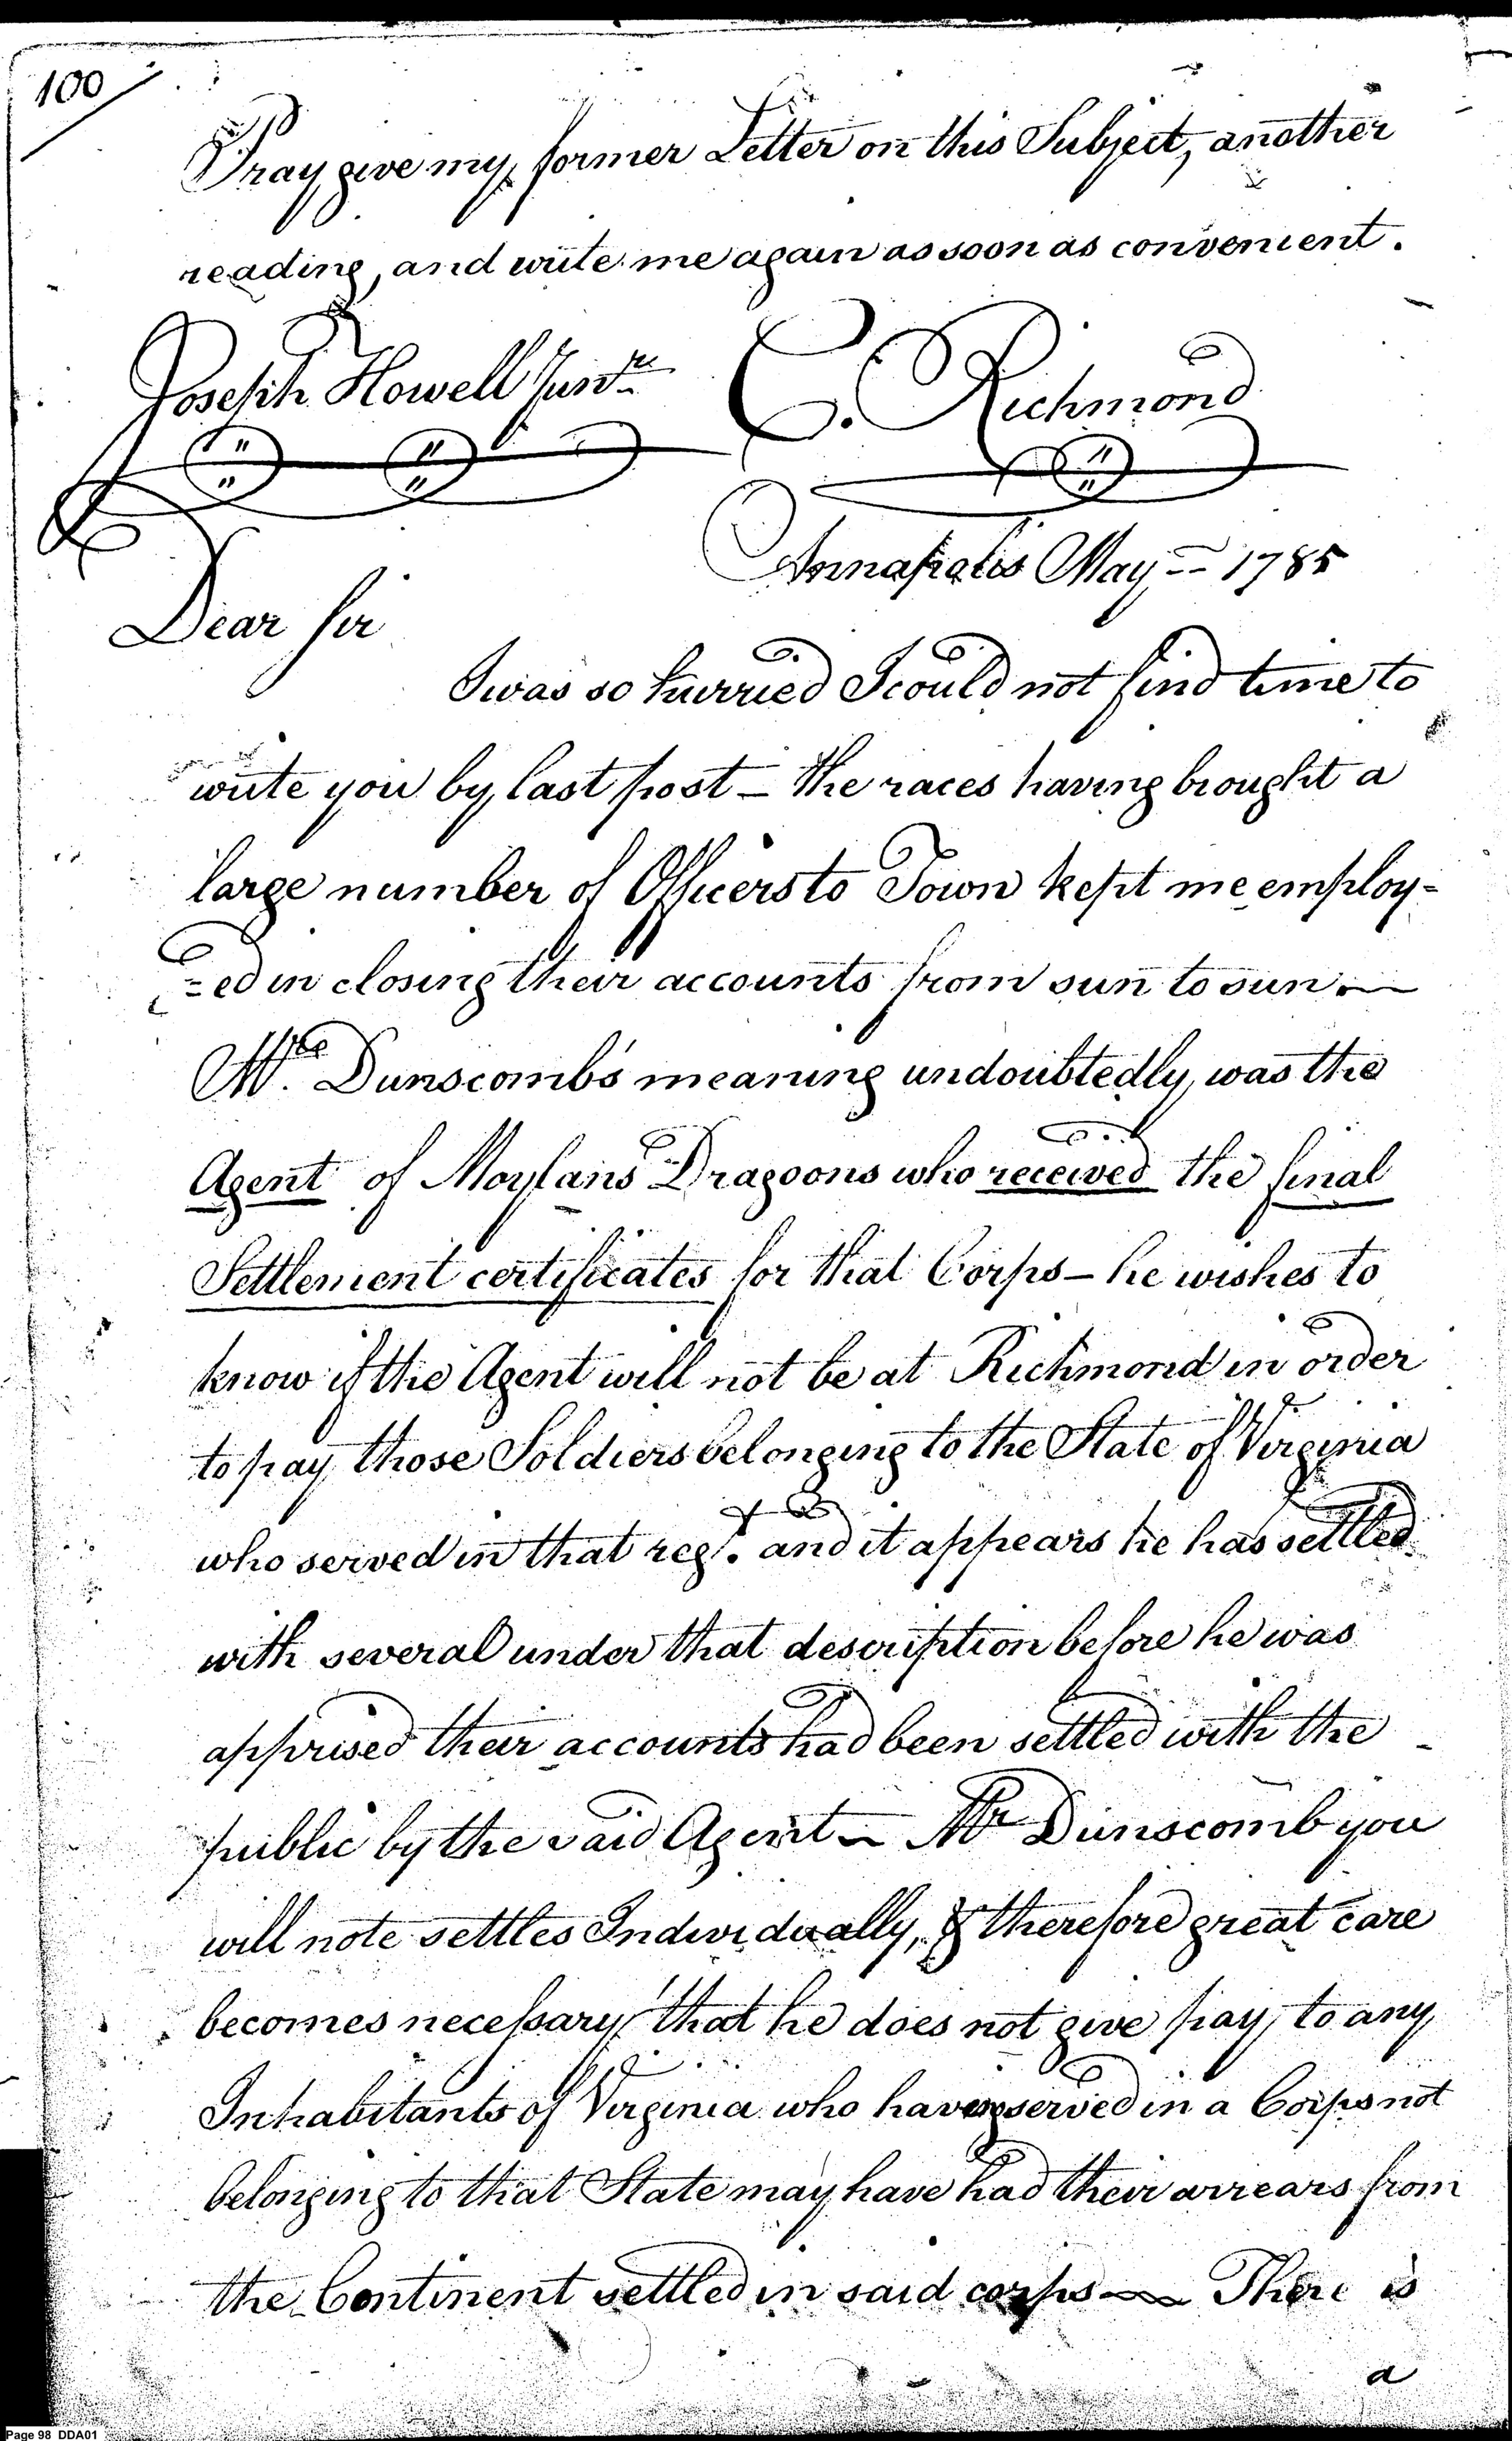 100
Pray give my former Letter on this Subject, another
reading, and write me again as soon as convenient.
Joseph Howell Junr. C. Richmond
Annapolis May = 1785
Dear Sir
I was so hurried I could not find time to
write you by last post – the races having brought a
large number of Officers to Town kept me employ=
=ed in closing their accounts from sun to sun. —
Mr. Dunscomb's meaning undoubtedly, was the
Agent of Moylans Dragoons who received the final
Settlement certificates for that Corps – he wishes to
know if the Agent will not be at Richmond in order
to pay those Soldiers belonging to the State of Virginia
who served in that regt. and it appears he has settled
with several under that description before he was
apprised their accounts had been settled with the
public by the said Agent – Mr Dunscomb you
will note settles Individually, & therefore great care
becomes necessary that he does not give pay, to any
Inhabitants of Virginia who having served in a Corps not
belonging to that State may have had their arrears from
the Continent settled in said corps — There is
a
Page 98 DDA01